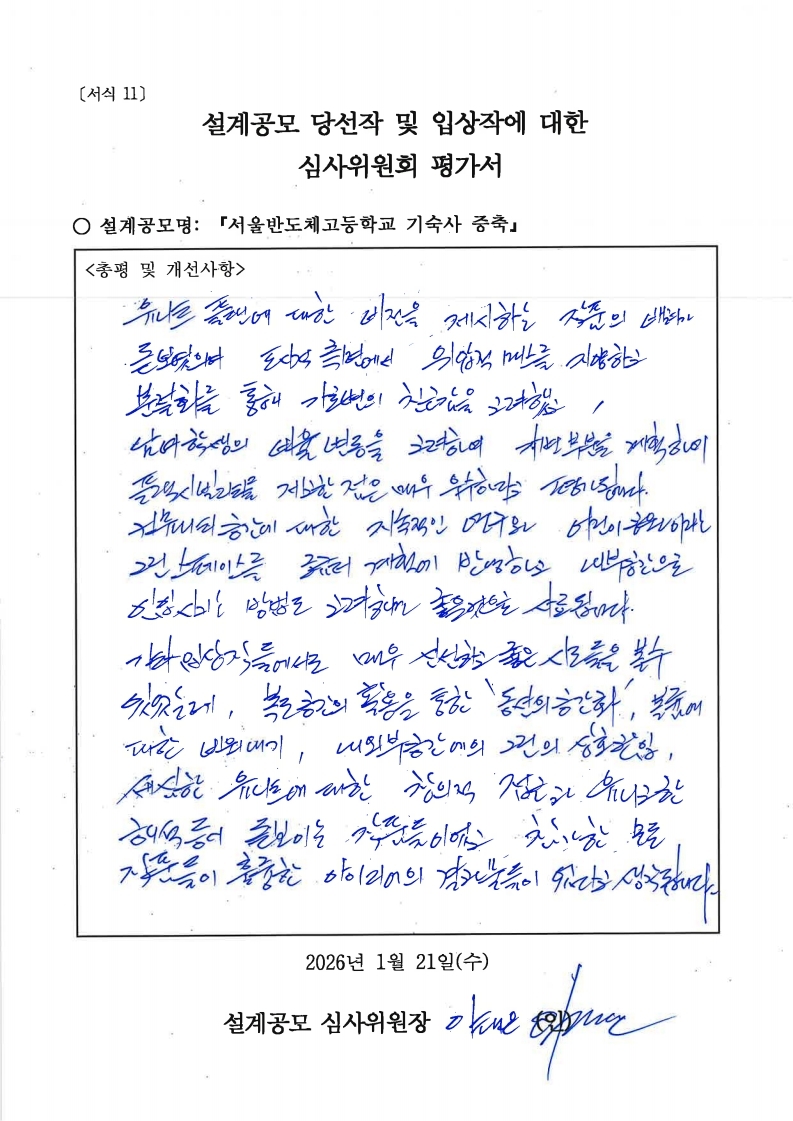 〔서식 11〕
설계공모 당선작 및 입상작에 대한
심사위원회 평가서
○ 설계공모명: 『서울반도체고등학교 기숙사 증축』
<총평 및 개선사항>
유니트 플랜에 대한 비전을 제시하는 작품의 배치가
돋보였으며 도시적 측면에서 위압적 매스를 지양하고
분절화를 통해 가로변의 친근감을 고려했고,
남녀학생의 비율 변동을 고려하여 가변부분을 계획하여
플렉시빌리티를 제고한 점은 매우 우수하다고 평가됩니다.
대한 지속적인 연구와
그린 스페이스를 계획에 반영하고 내부공간으로
방법도 고려하면 좋을것으로 사료됩니다.
기타 입상작들에서도 매우 신선하고 좋은 시도들을 볼수
있었는데, 복도공간의 활용을 통한 '동선의 공간화',
대한 내외부공간에의 그린의 상호관입,
세심한 유니트에 대한 창의적 접근과 유니크한
해석등이 돋보이는 작품들이었고 참가한 모든
작품들이 훌륭한 아이디어의 결과물들이 었다고 생각합니다.
2026년 1월 21일(수)
설계공모 심사위원장 (인)